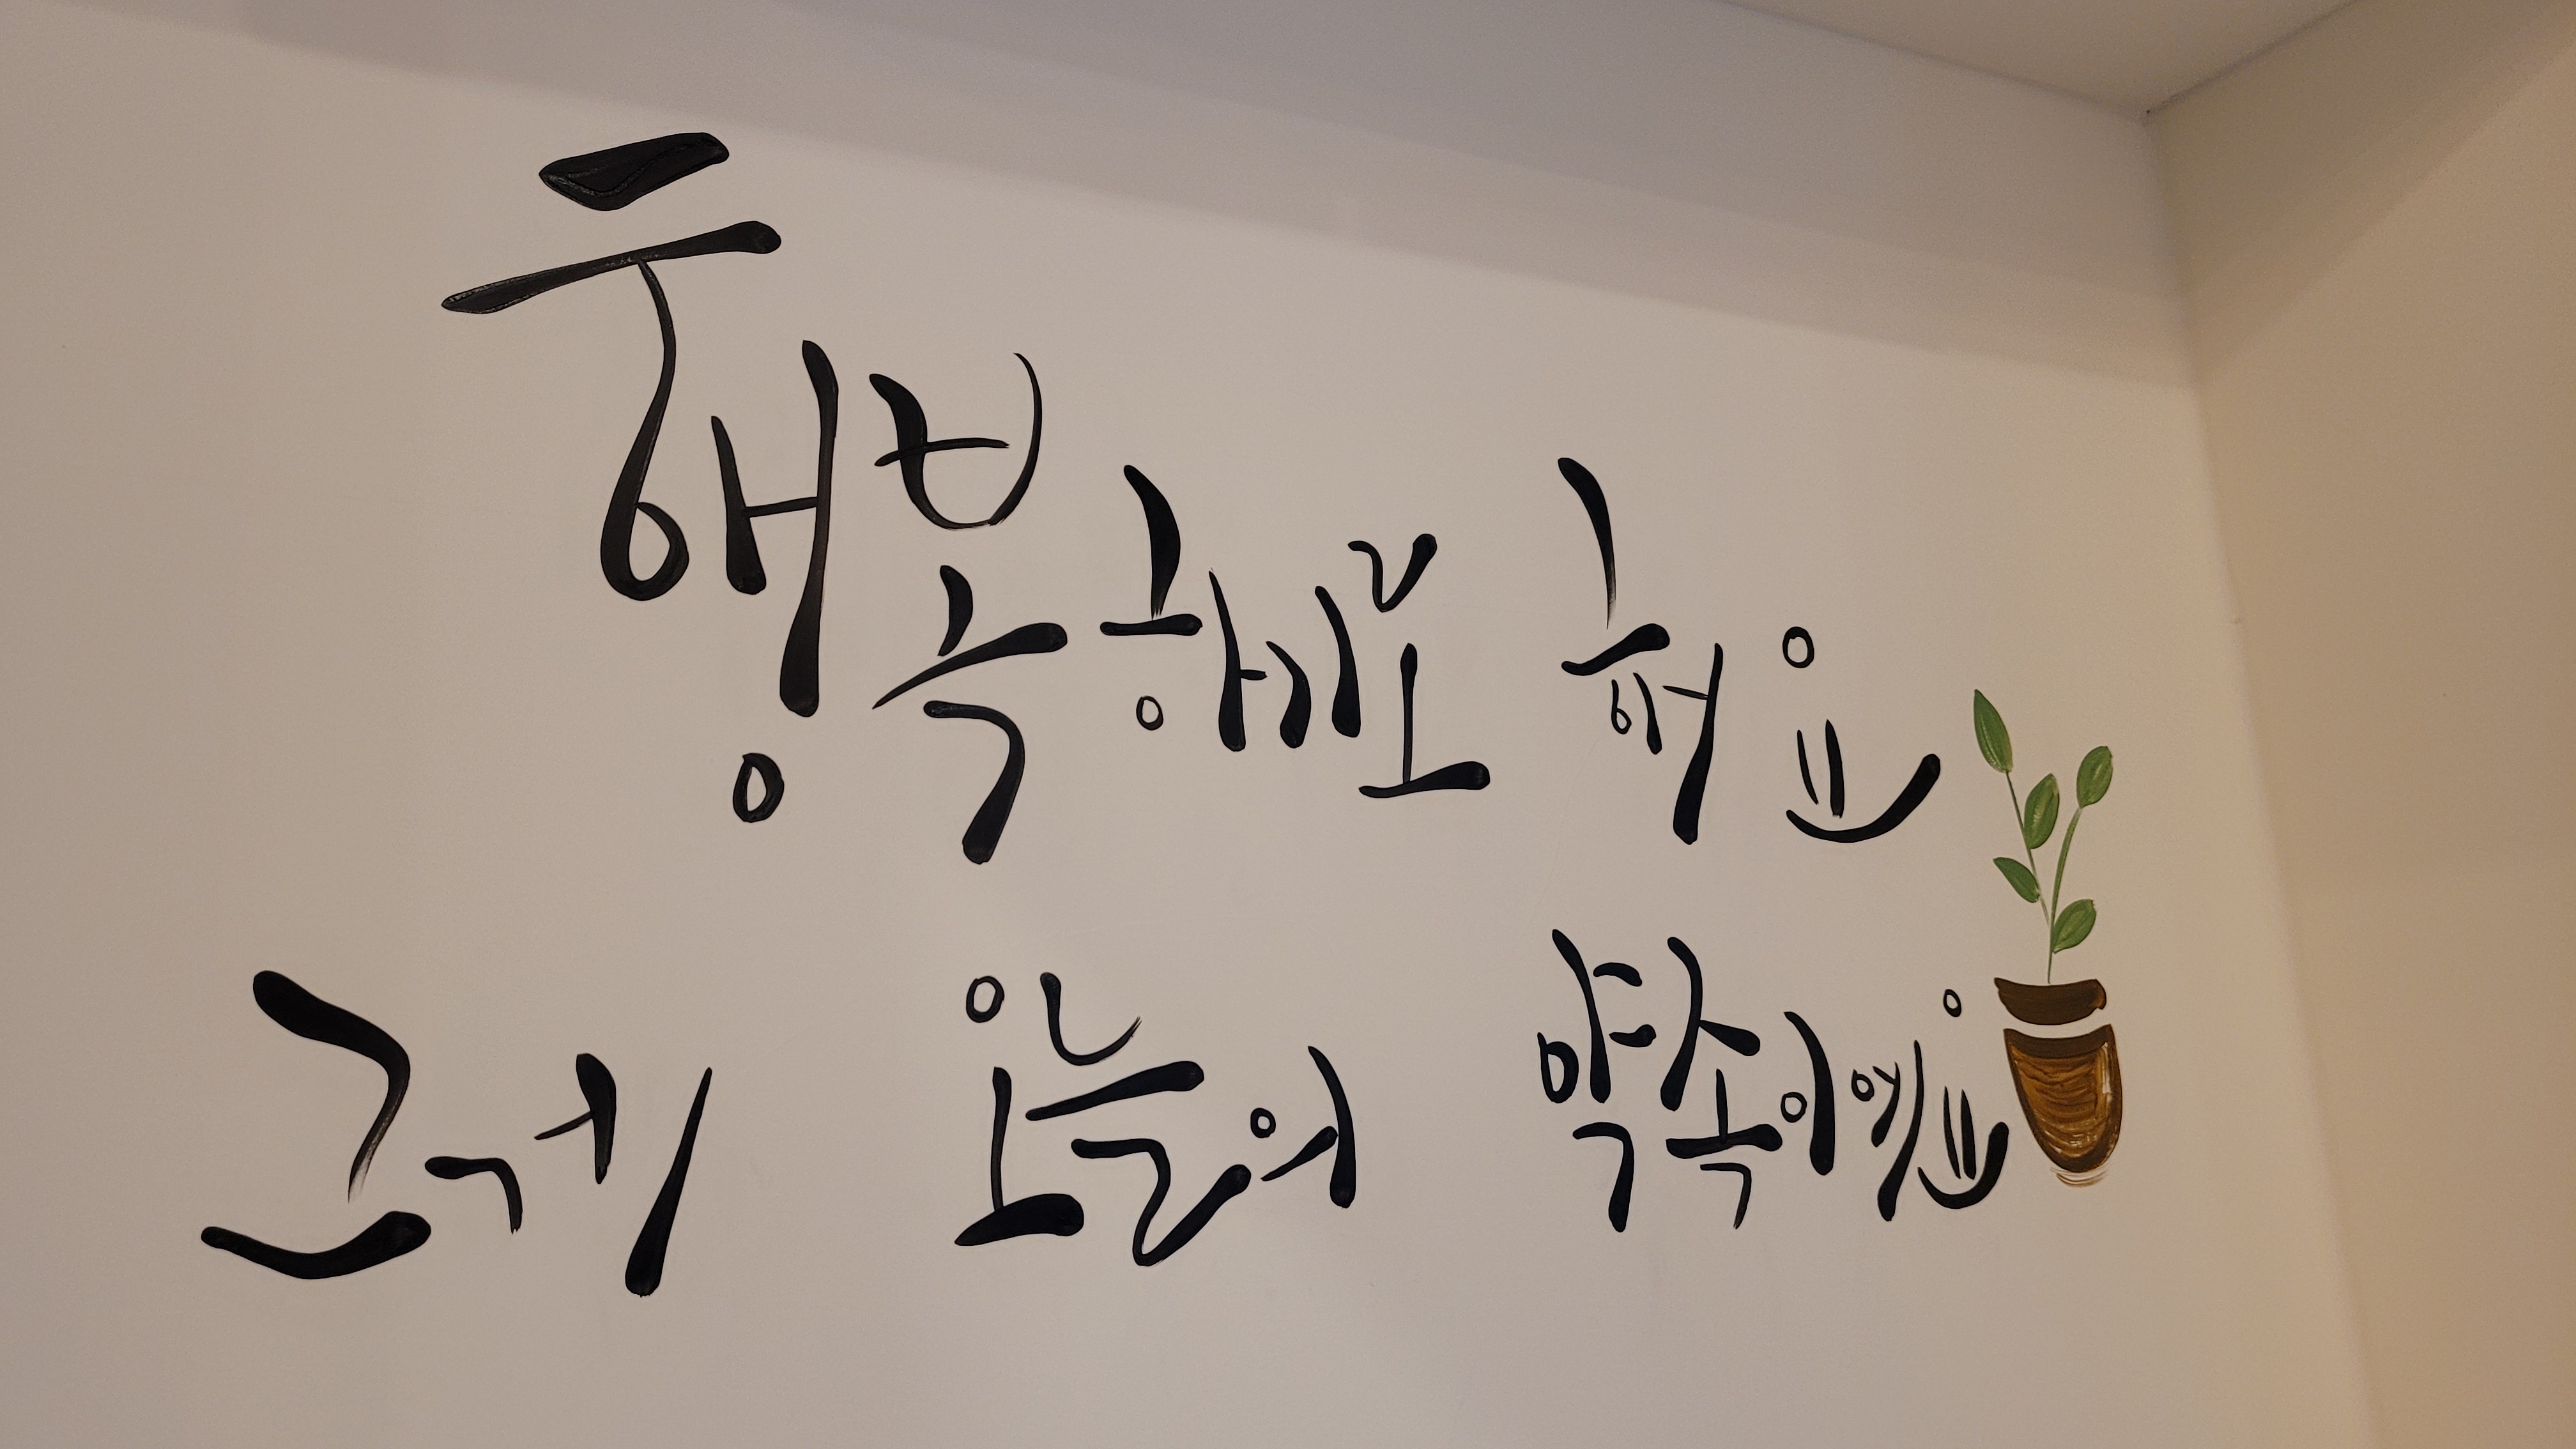 행복하기로 해요
그게 오늘의 약속이예요